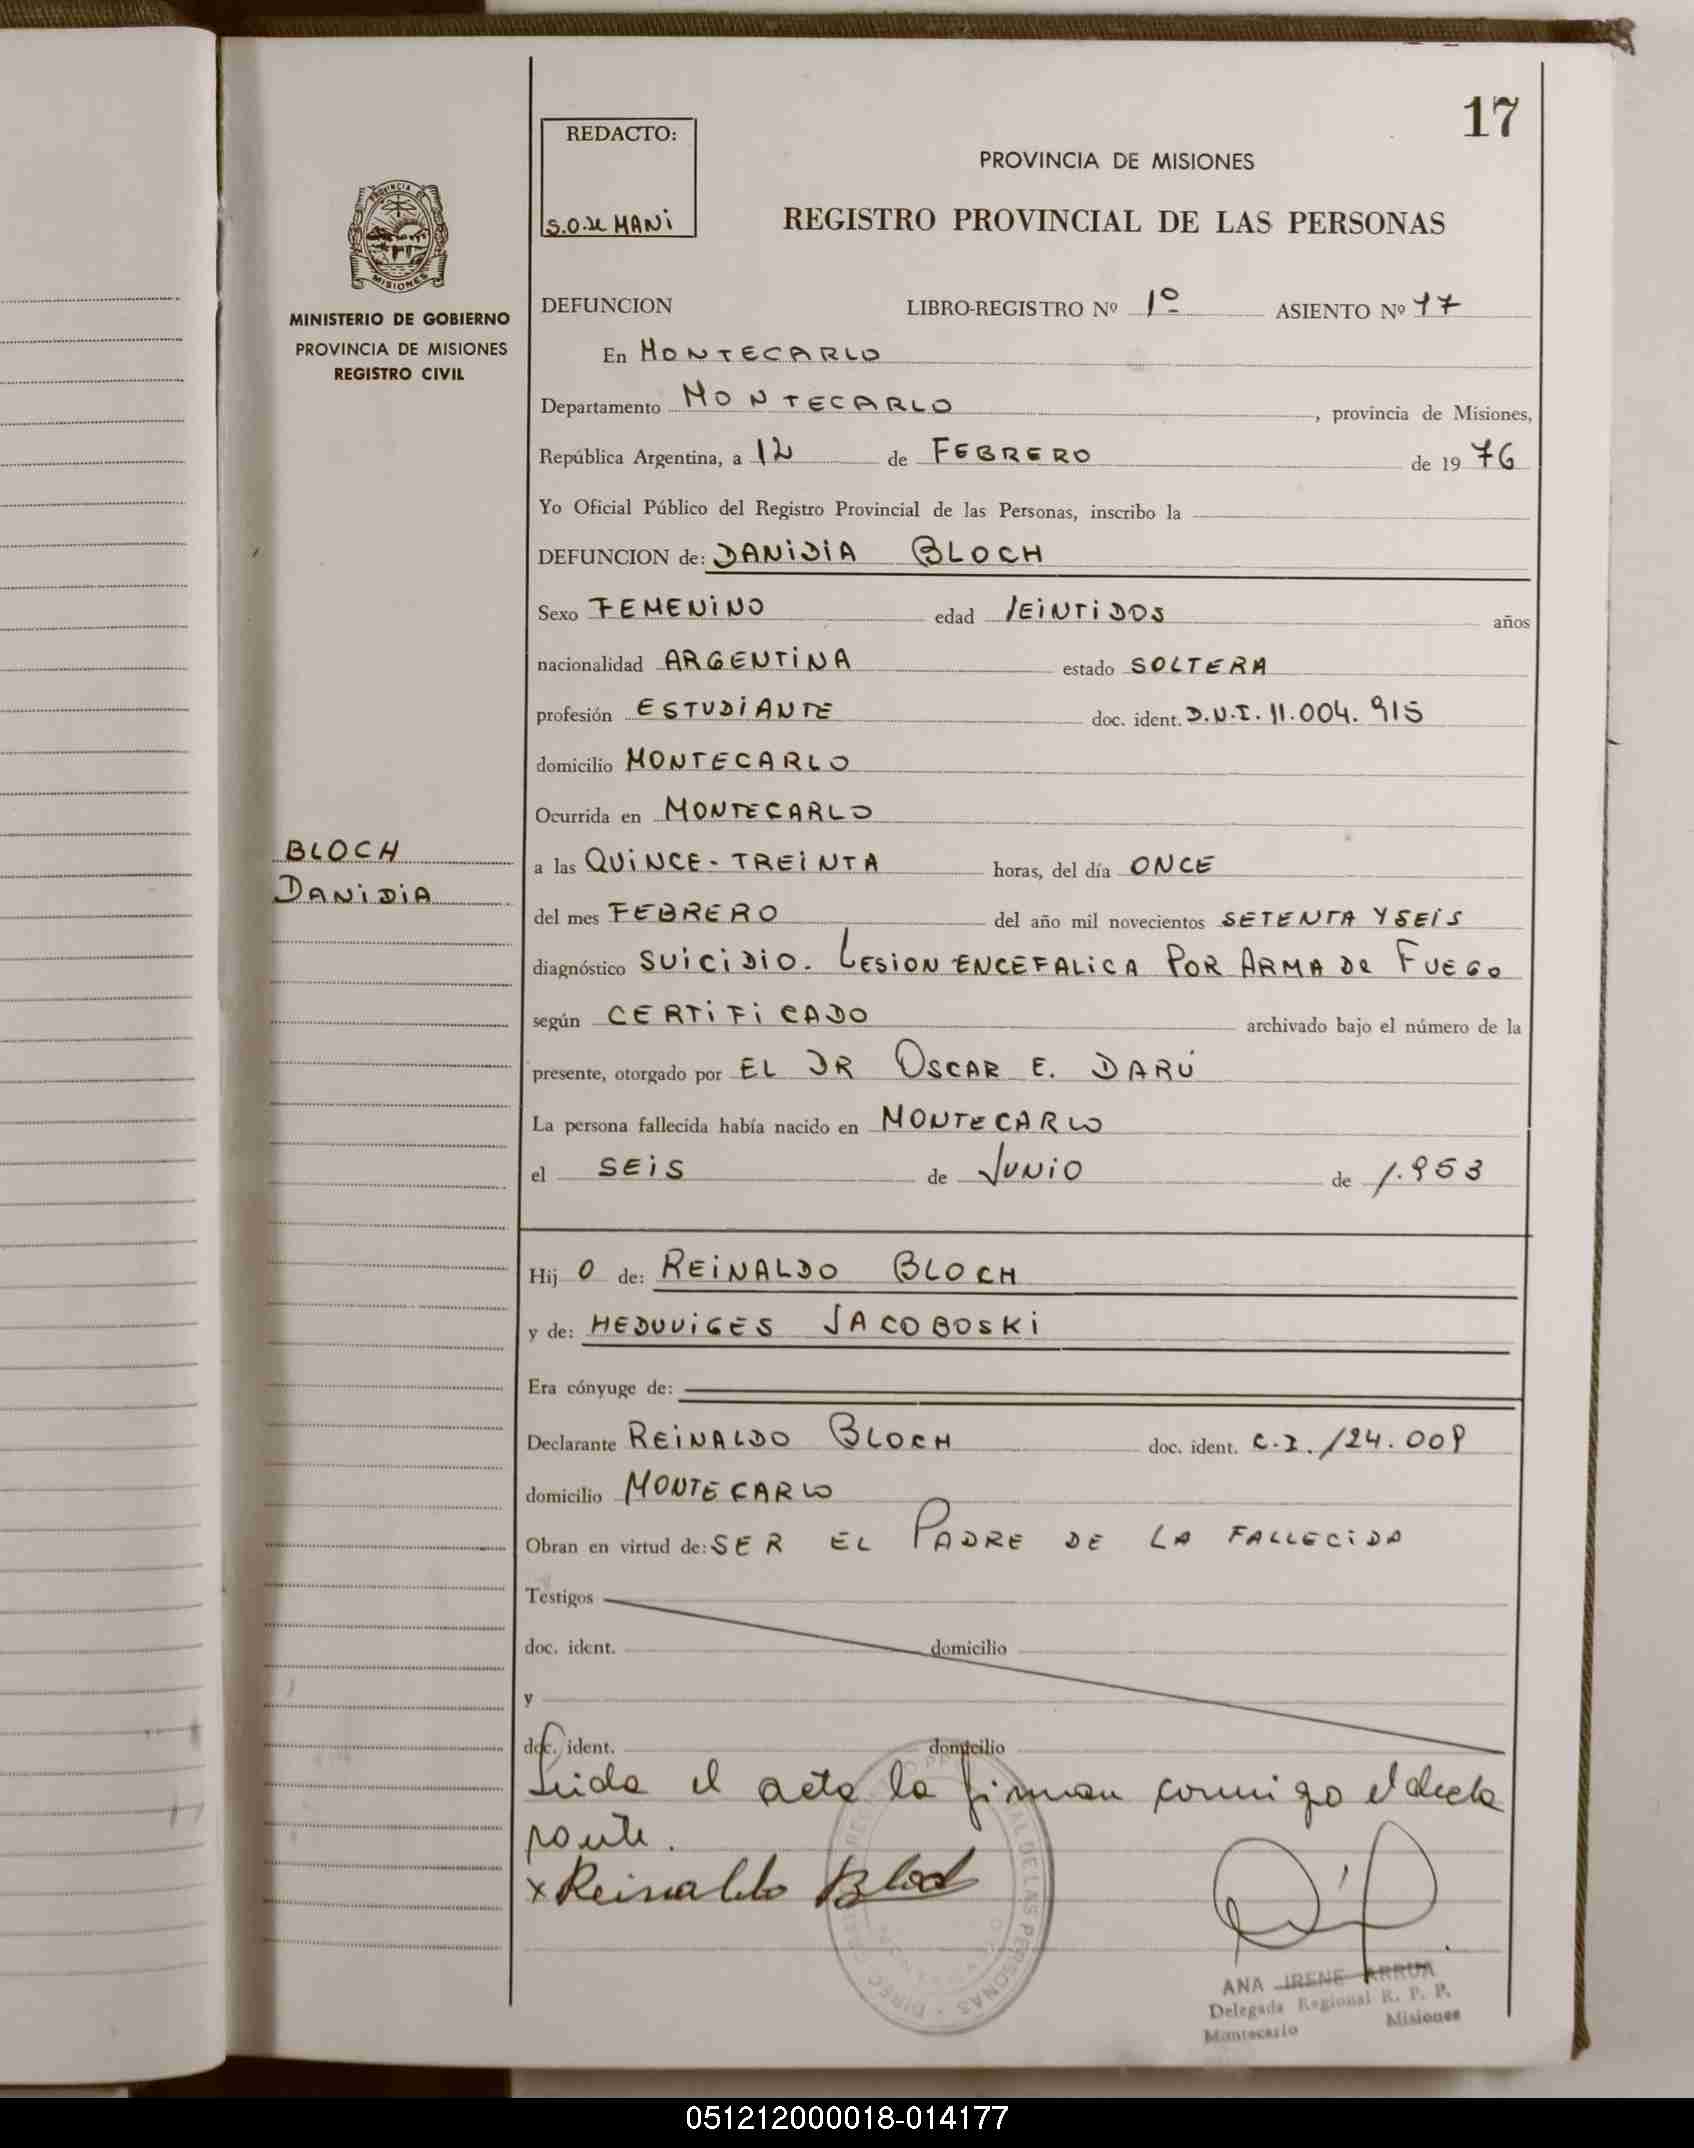 17
REDACTO:
S.O.de MANI
PROVINCIA DE MISIONES
REGISTRO PROVINCIAL DE LAS PERSONAS
PROVINCIA DE
MISIONES
MINISTERIO DE GOBIERNO
PROVINCIA DE MISIONES
REGISTRO CIVIL
DEFUNCION LIBRO-REGISTRO Nº 1º ASIENTO Nº 17
En MONTECARLO
Departamento MONTECARLO, provincia de Misiones,
República Argentina, a 12 de FEBRERO de 1976
Yo Oficial Público del Registro Provincial de las Personas, inscribo la
DEFUNCION de: DANIDIA BLOCH
Sexo FEMENINO edad VEINTIDOS años
nacionalidad ARGENTINA estado SOLTERA
profesión ESTUDIANTE doc. ident. D.N.I. 11.004.915
domicilio MONTECARLO
Ocurrida en MONTECARLO
BLOCH
DANIDIA
a las QUINCE-TREINTA horas, del día ONCE
del mes FEBRERO del año mil novecientos SETENTA Y SEIS
diagnóstico SUICIDIO. LESION ENCEFALICA POR ARMA DE FUEGO
según CERTIFICADO archivado bajo el número de la
presente, otorgado por EL DR OSCAR E. DARÚ
La persona fallecida había nacido en MONTECARLO
el SEIS de JUNIO de 1.953
Hij O de: REINALDO BLOCH
y de: HEDUVIGES JACOBOSKI
Era cónyuge de:
Declarante REINALDO BLOCH doc. ident. C.I. 124.009
domicilio MONTECARLO
Obran en virtud de: SER EL PADRE DE LA FALLECIDA
Testigos
doc. ident. domicilio
y
doc. ident. domicilio
Leida el acta la firman conmigo el decla
rante.
x Reinaldo Bloch
ANA IRENE ARRUA
Delegada Regional R. P. P.
Montecarlo Misiones
051212000018-014177